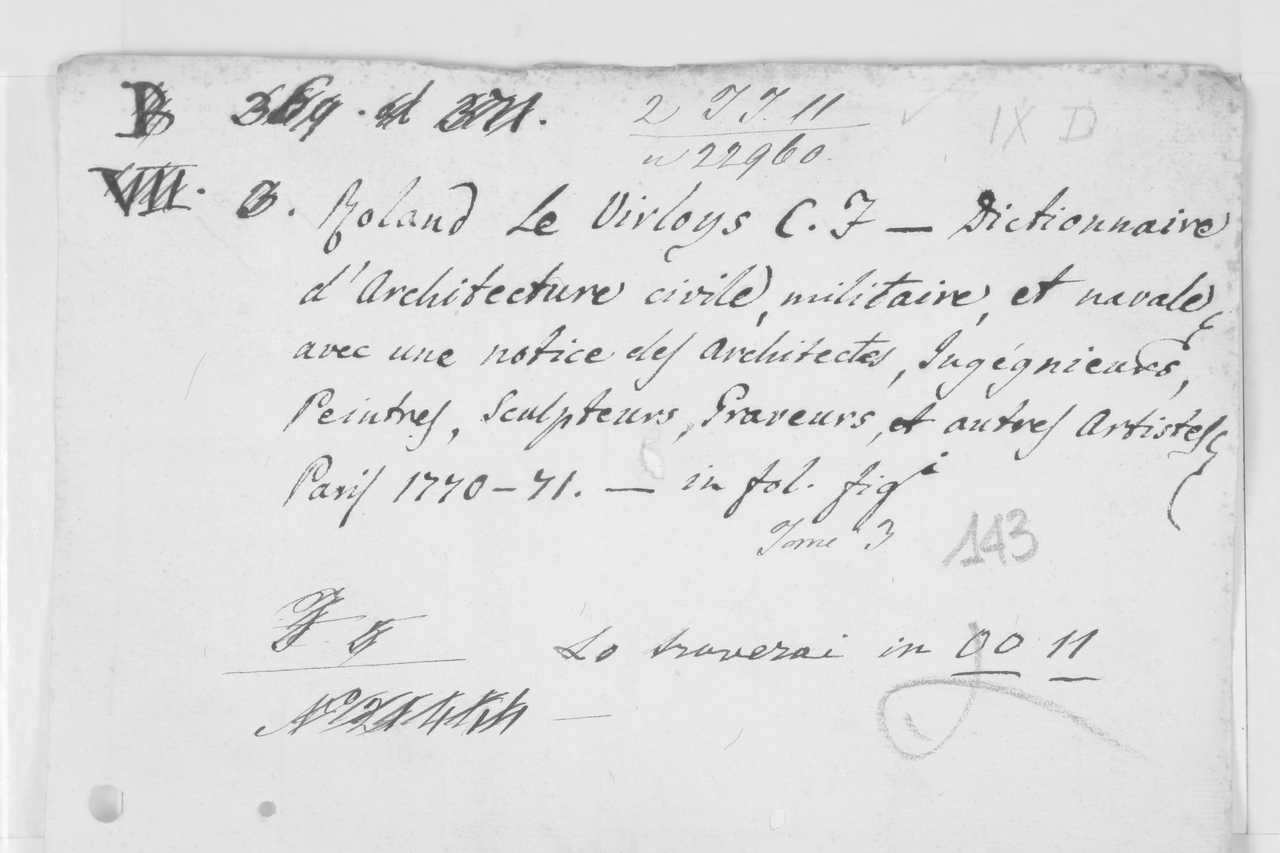 2 JJ. 11
IX D
n 22960.
VIII. 3. Roland Le Virloys C. F — Dictionnaire
d'Architecture civile, militaire, et navale,
avec une notice des Architectes, Ingégnieurs,
Peintres, Sculpteurs, Graveurs, et autres Artistes,
Paris 1770–71. — in fol. fig.
Tome 3
143
Lo troverai in OO 11